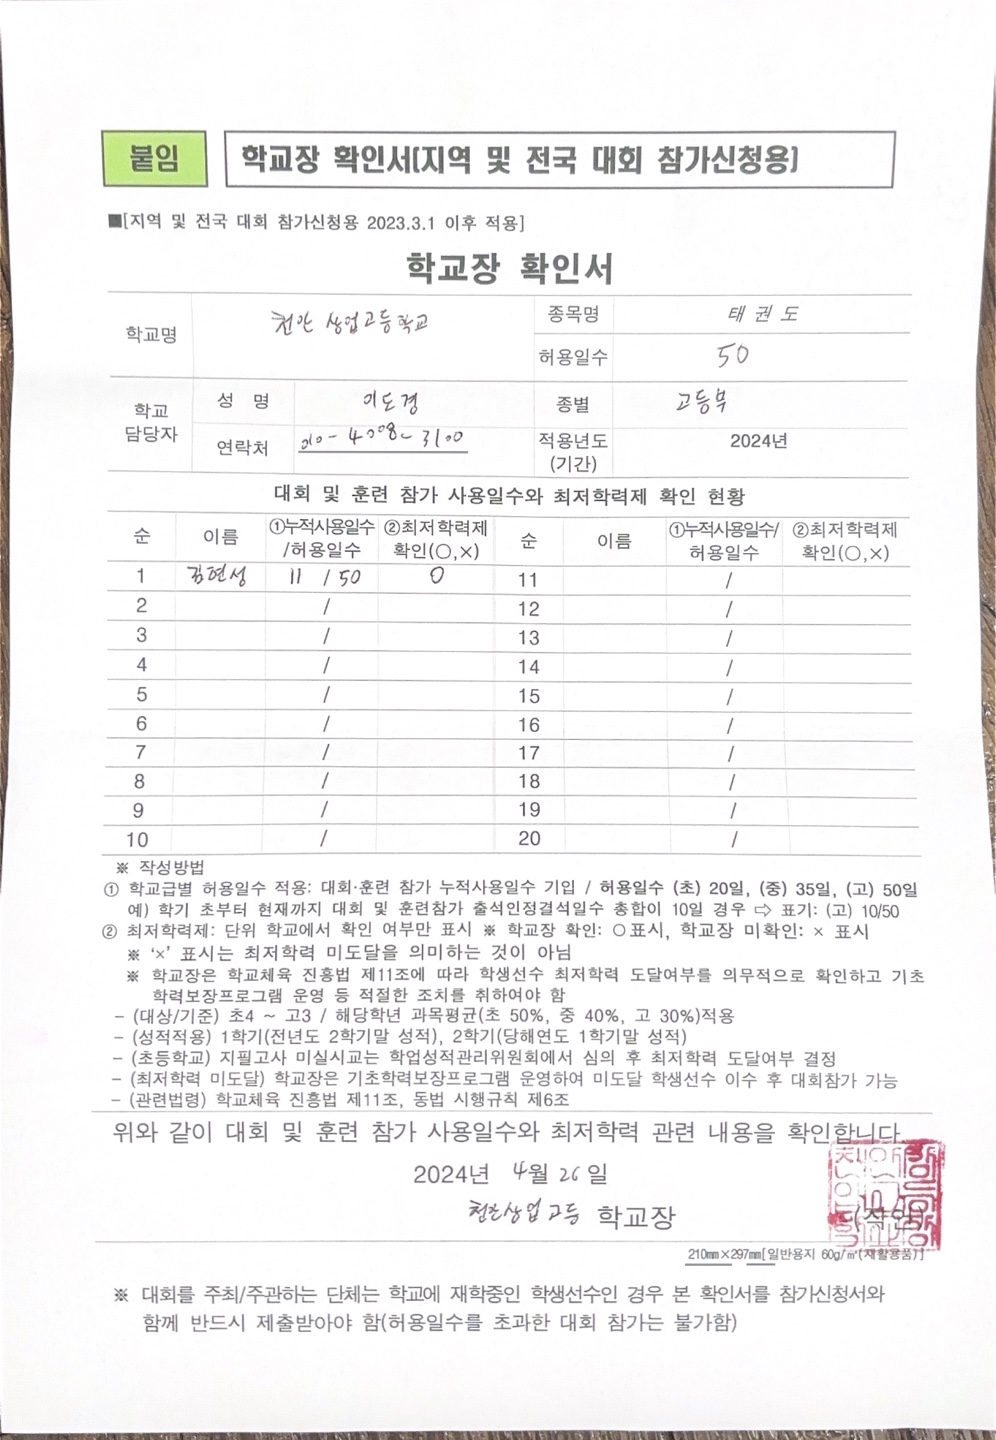 붙임
학교장 확인서(지역 및 전국 대회 참가신청용)
■[지역 및 전국 대회 참가신청용 2023.3.1 이후 적용]
학교장 확인서
학교명 천안상업고등학교 종목명 태권도
허용일수 50
학교 담당자 성 명 이도경 종별 고등부
연락처 010-4008-3100 적용년도 (기간) 2024년
대회 및 훈련 참가 사용일수와 최저학력제 확인 현황
순 이름 ①누적사용일수/허용일수 ②최저학력제 확인(○,×) 순 이름 ①누적사용일수/허용일수 ②최저학력제 확인(○,×)
1 김현성 11 / 50 O 11 /
2 / 12 /
3 / 13 /
4 / 14 /
5 / 15 /
6 / 16 /
7 / 17 /
8 / 18 /
9 / 19 /
10 / 20 /
※ 작성방법
① 학교급별 허용일수 적용: 대회·훈련 참가 누적사용일수 기입 / 허용일수 (초) 20일, (중) 35일, (고) 50일
예) 학기 초부터 현재까지 대회 및 훈련참가 출석인정결석일수 총합이 10일 경우 ⇨ 표기: (고) 10/50
② 최저학력제: 단위 학교에서 확인 여부만 표시 ※ 학교장 확인: ○표시, 학교장 미확인: × 표시
※ ‘×’ 표시는 최저학력 미도달을 의미하는 것이 아님
※ 학교장은 학교체육 진흥법 제11조에 따라 학생선수 최저학력 도달여부를 의무적으로 확인하고 기초
학력보장프로그램 운영 등 적절한 조치를 취하여야 함
- (대상/기준) 초4 ~ 고3 / 해당학년 과목평균(초 50%, 중 40%, 고 30%)적용
- (성적적용) 1학기(전년도 2학기말 성적), 2학기(당해연도 1학기말 성적)
- (초등학교) 지필고사 미실시교는 학업성적관리위원회에서 심의 후 최저학력 도달여부 결정
- (최저학력 미도달) 학교장은 기초학력보장프로그램 운영하여 미도달 학생선수 이수 후 대회참가 가능
- (관련법령) 학교체육 진흥법 제11조, 동법 시행규칙 제6조
위와 같이 대회 및 훈련 참가 사용일수와 최저학력 관련 내용을 확인합니다.
2024년 4월 26일
천안상업고등 학교장 (직인)
210㎜×297㎜[일반용지 60g/㎡(재활용품)]
※ 대회를 주최/주관하는 단체는 학교에 재학중인 학생선수인 경우 본 확인서를 참가신청서와
함께 반드시 제출받아야 함(허용일수를 초과한 대회 참가는 불가함)